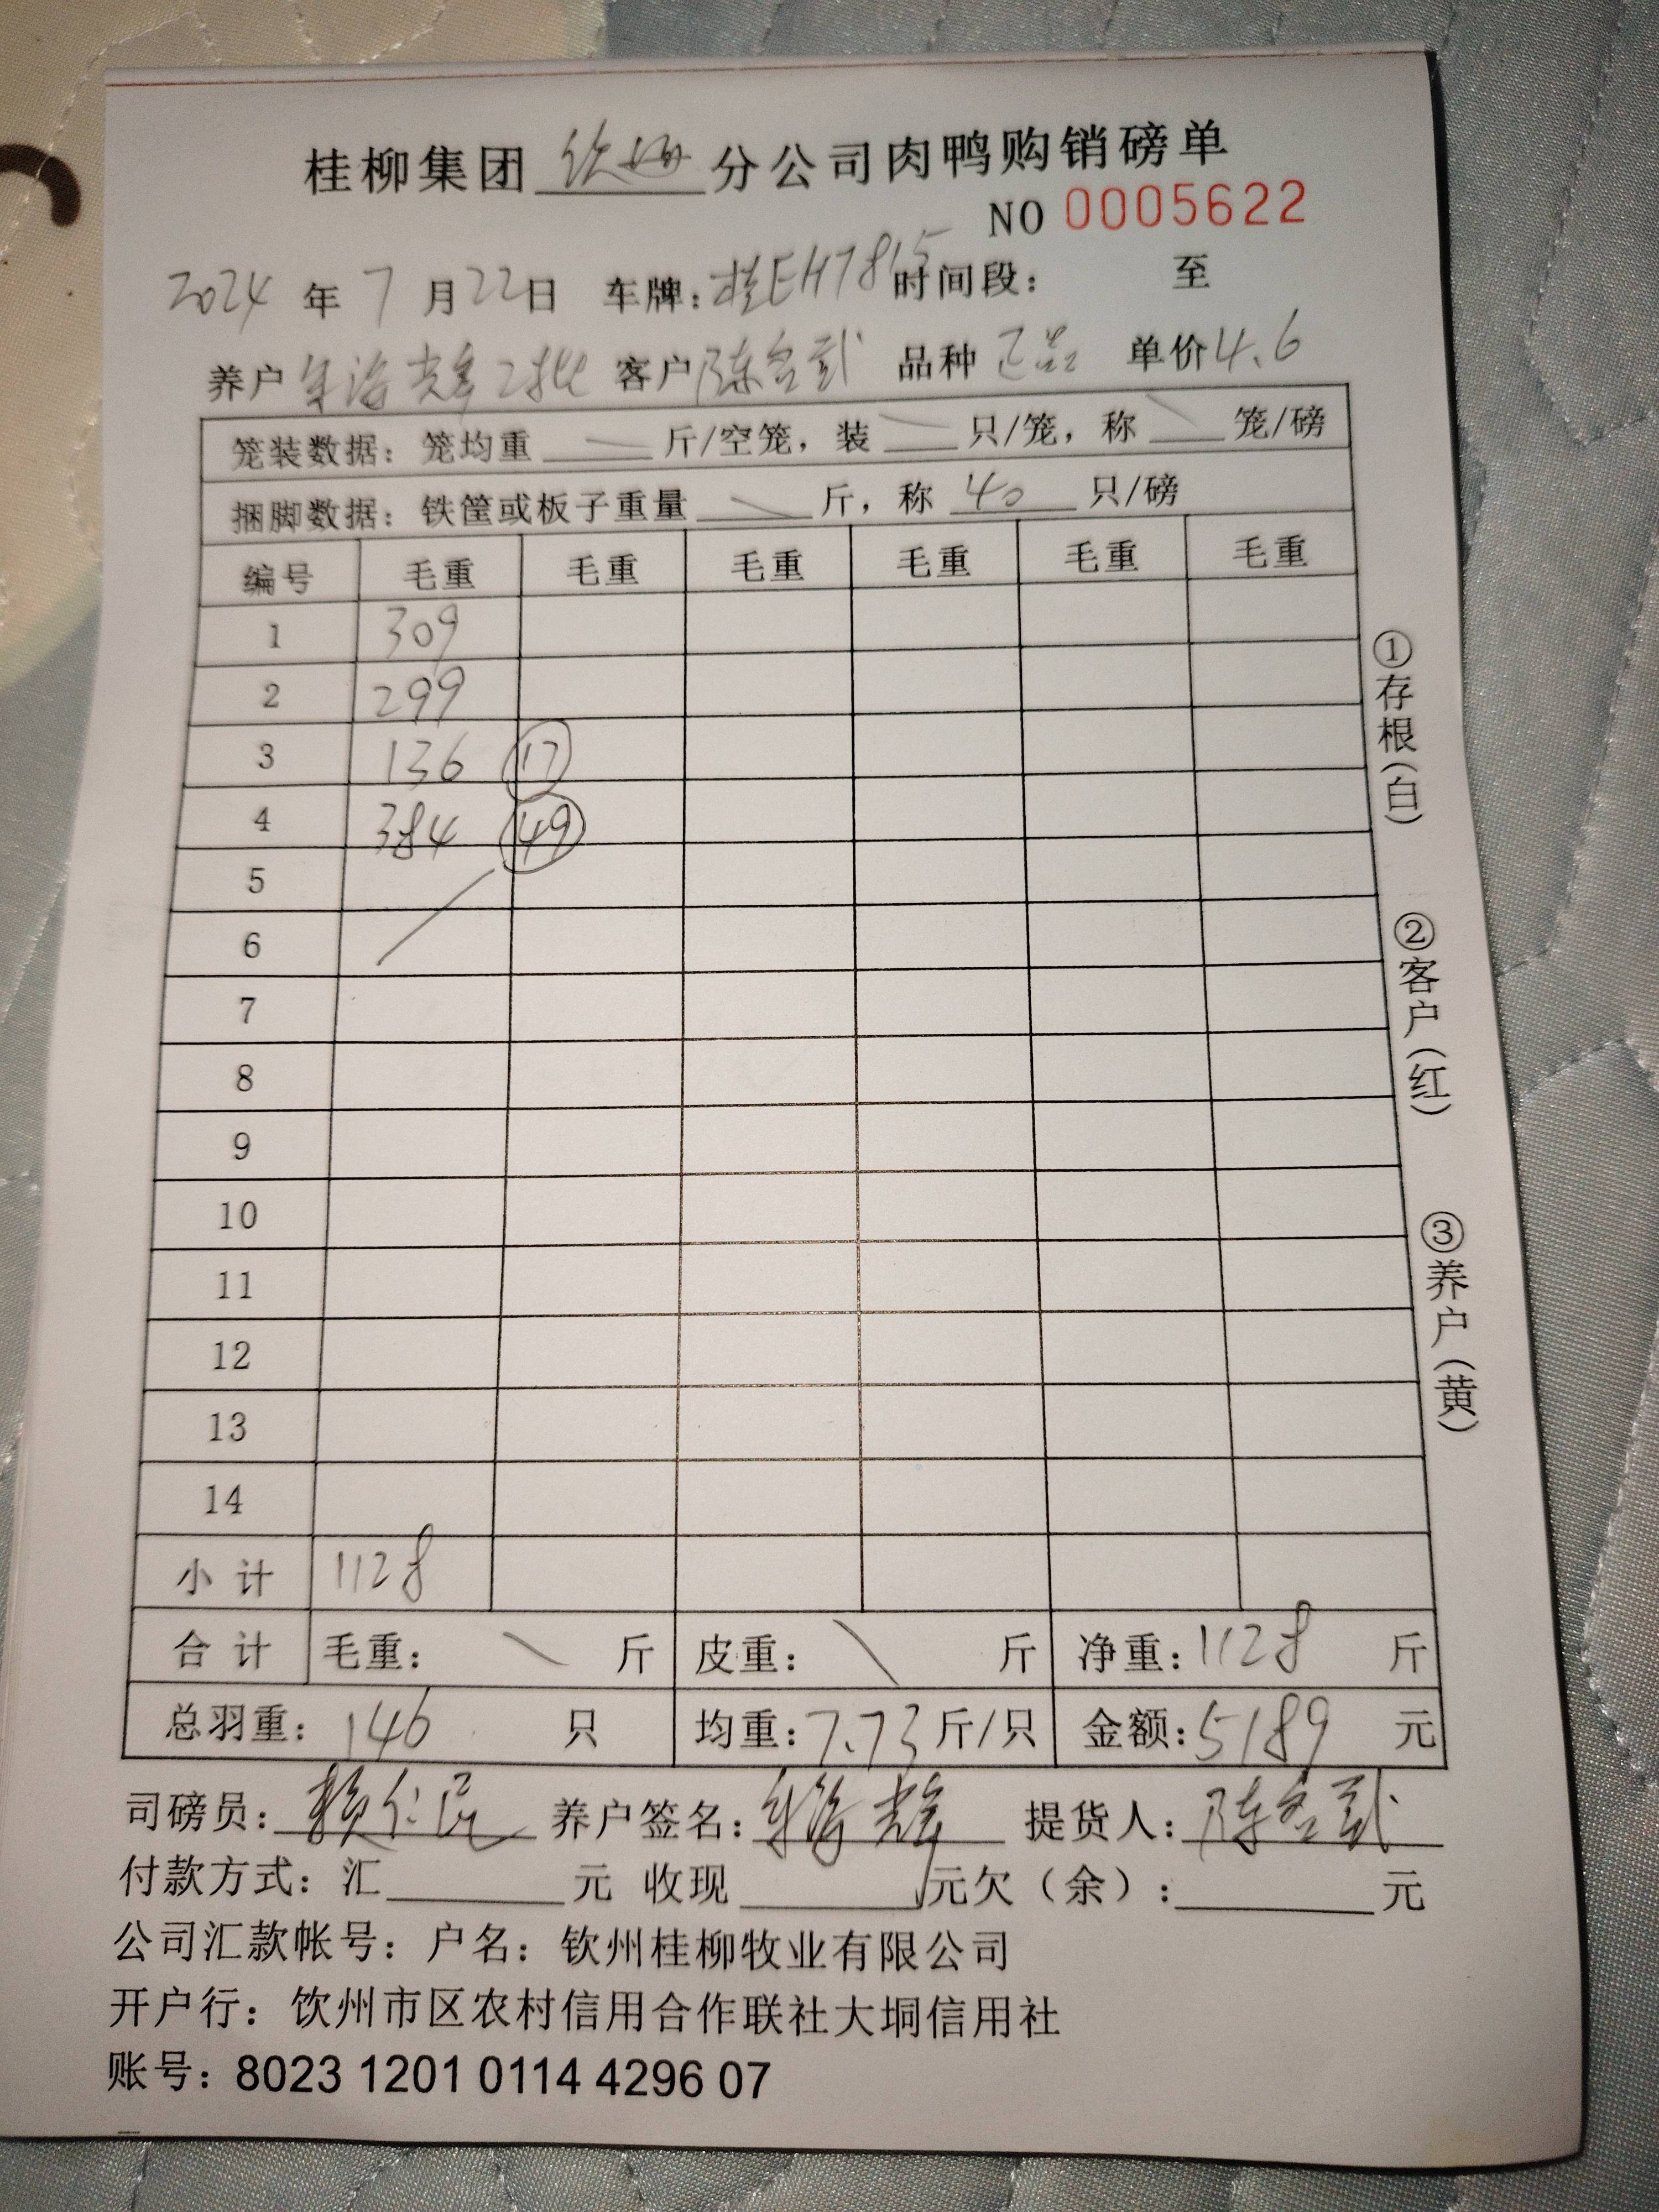 桂柳集团 钦州 分公司肉鸭购销磅单
NO 0005622
2024 年 7 月 22 日 车牌：桂EH7815 时间段： 至
养户 海辉2批 客户 陈名武 品种 正品 单价 4.6
笼装数据：笼均重 斤/空笼，装 只/笼，称 笼/磅
捆脚数据：铁筐或板子重量 斤，称 40 只/磅
编号 毛重 毛重 毛重 毛重 毛重 毛重
1 309
2 299
3 136 17
4 384 49
5
6
7
8
9
10
11
12
13
14
小计 1128
合计 毛重： 斤 皮重： 斤 净重：1128 斤
总羽重：146 只 均重：7.73 斤/只 金额：5189 元
司磅员：赖仁 养户签名：海辉 提货人：陈名武
付款方式：汇 元 收现 元欠（余）： 元
公司汇款帐号：户名：钦州桂柳牧业有限公司
开户行：饮州市区农村信用合作联社大垌信用社
账号：8023 1201 0114 4296 07
①存根（白）
②客户（红）
③养户（黄）